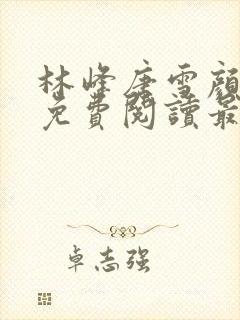 林峰唐雪顏
免費閱讀最
卓志强